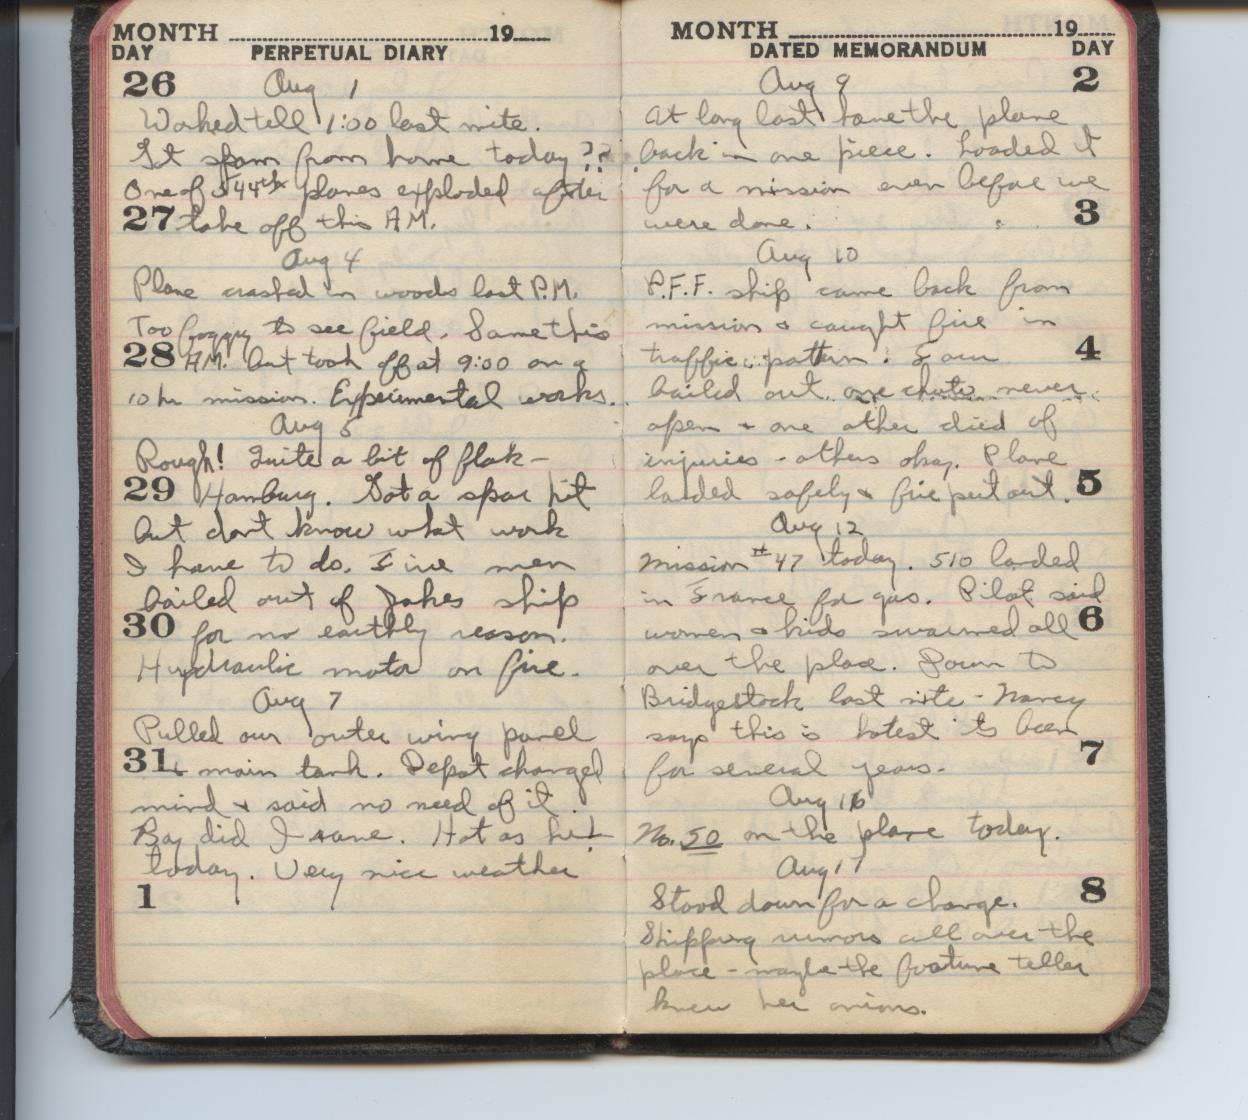 MONTH 19
DAY PERPETUAL DIARY
26 Aug 1
Worked tell 1:00 last nite.
Got spam from home today ??
One of 544th planes exploded after
27 take off this A.M.
Aug 4
Plane crashed in woods last P.M.
Too foggy to see field. Same this
28 A.M. but took off at 9:00 on a
10 hr mission. Experimental works.
Aug 5
Rough! Quite a bit of flak -
29 Hamburg. Got a spar hit
but dont know what work
I have to do. Five men
bailed out of Jakes ship
30 for no earthly reason.
Hydraulic motor on fire.
Aug 7
Pulled our outer wing panel
31 & main tank. Depot changed
mind & said no need of it.
Boy did I rave. Hot as hel
today. Very nice weather
1
MONTH 19
DATED MEMORANDUM DAY
Aug 9 2
At long last have the plane
back in one piece. Loaded it
for a mission even before we
were done. 3
Aug 10
P.F.F. ship came back from
mission & caught fire in
traffic pattern. Four 4
bailed out, one chute never
open & one other died of
injuries - others okay. Plane
landed safely & fire put out. 5
Aug 12
Mission #47 today. 510 landed
in France for gas. Pilot said
women & kids swarmed all 6
over the place. Down to
Bridgestock last nite - Nancy
says this is hotest its been
for several years. 7
Aug 16
No. 50 on the plane today.
Aug 17
Stood down for a change. 8
Shipping rumors all over the
place - maybe the fortune teller
knew her onions.